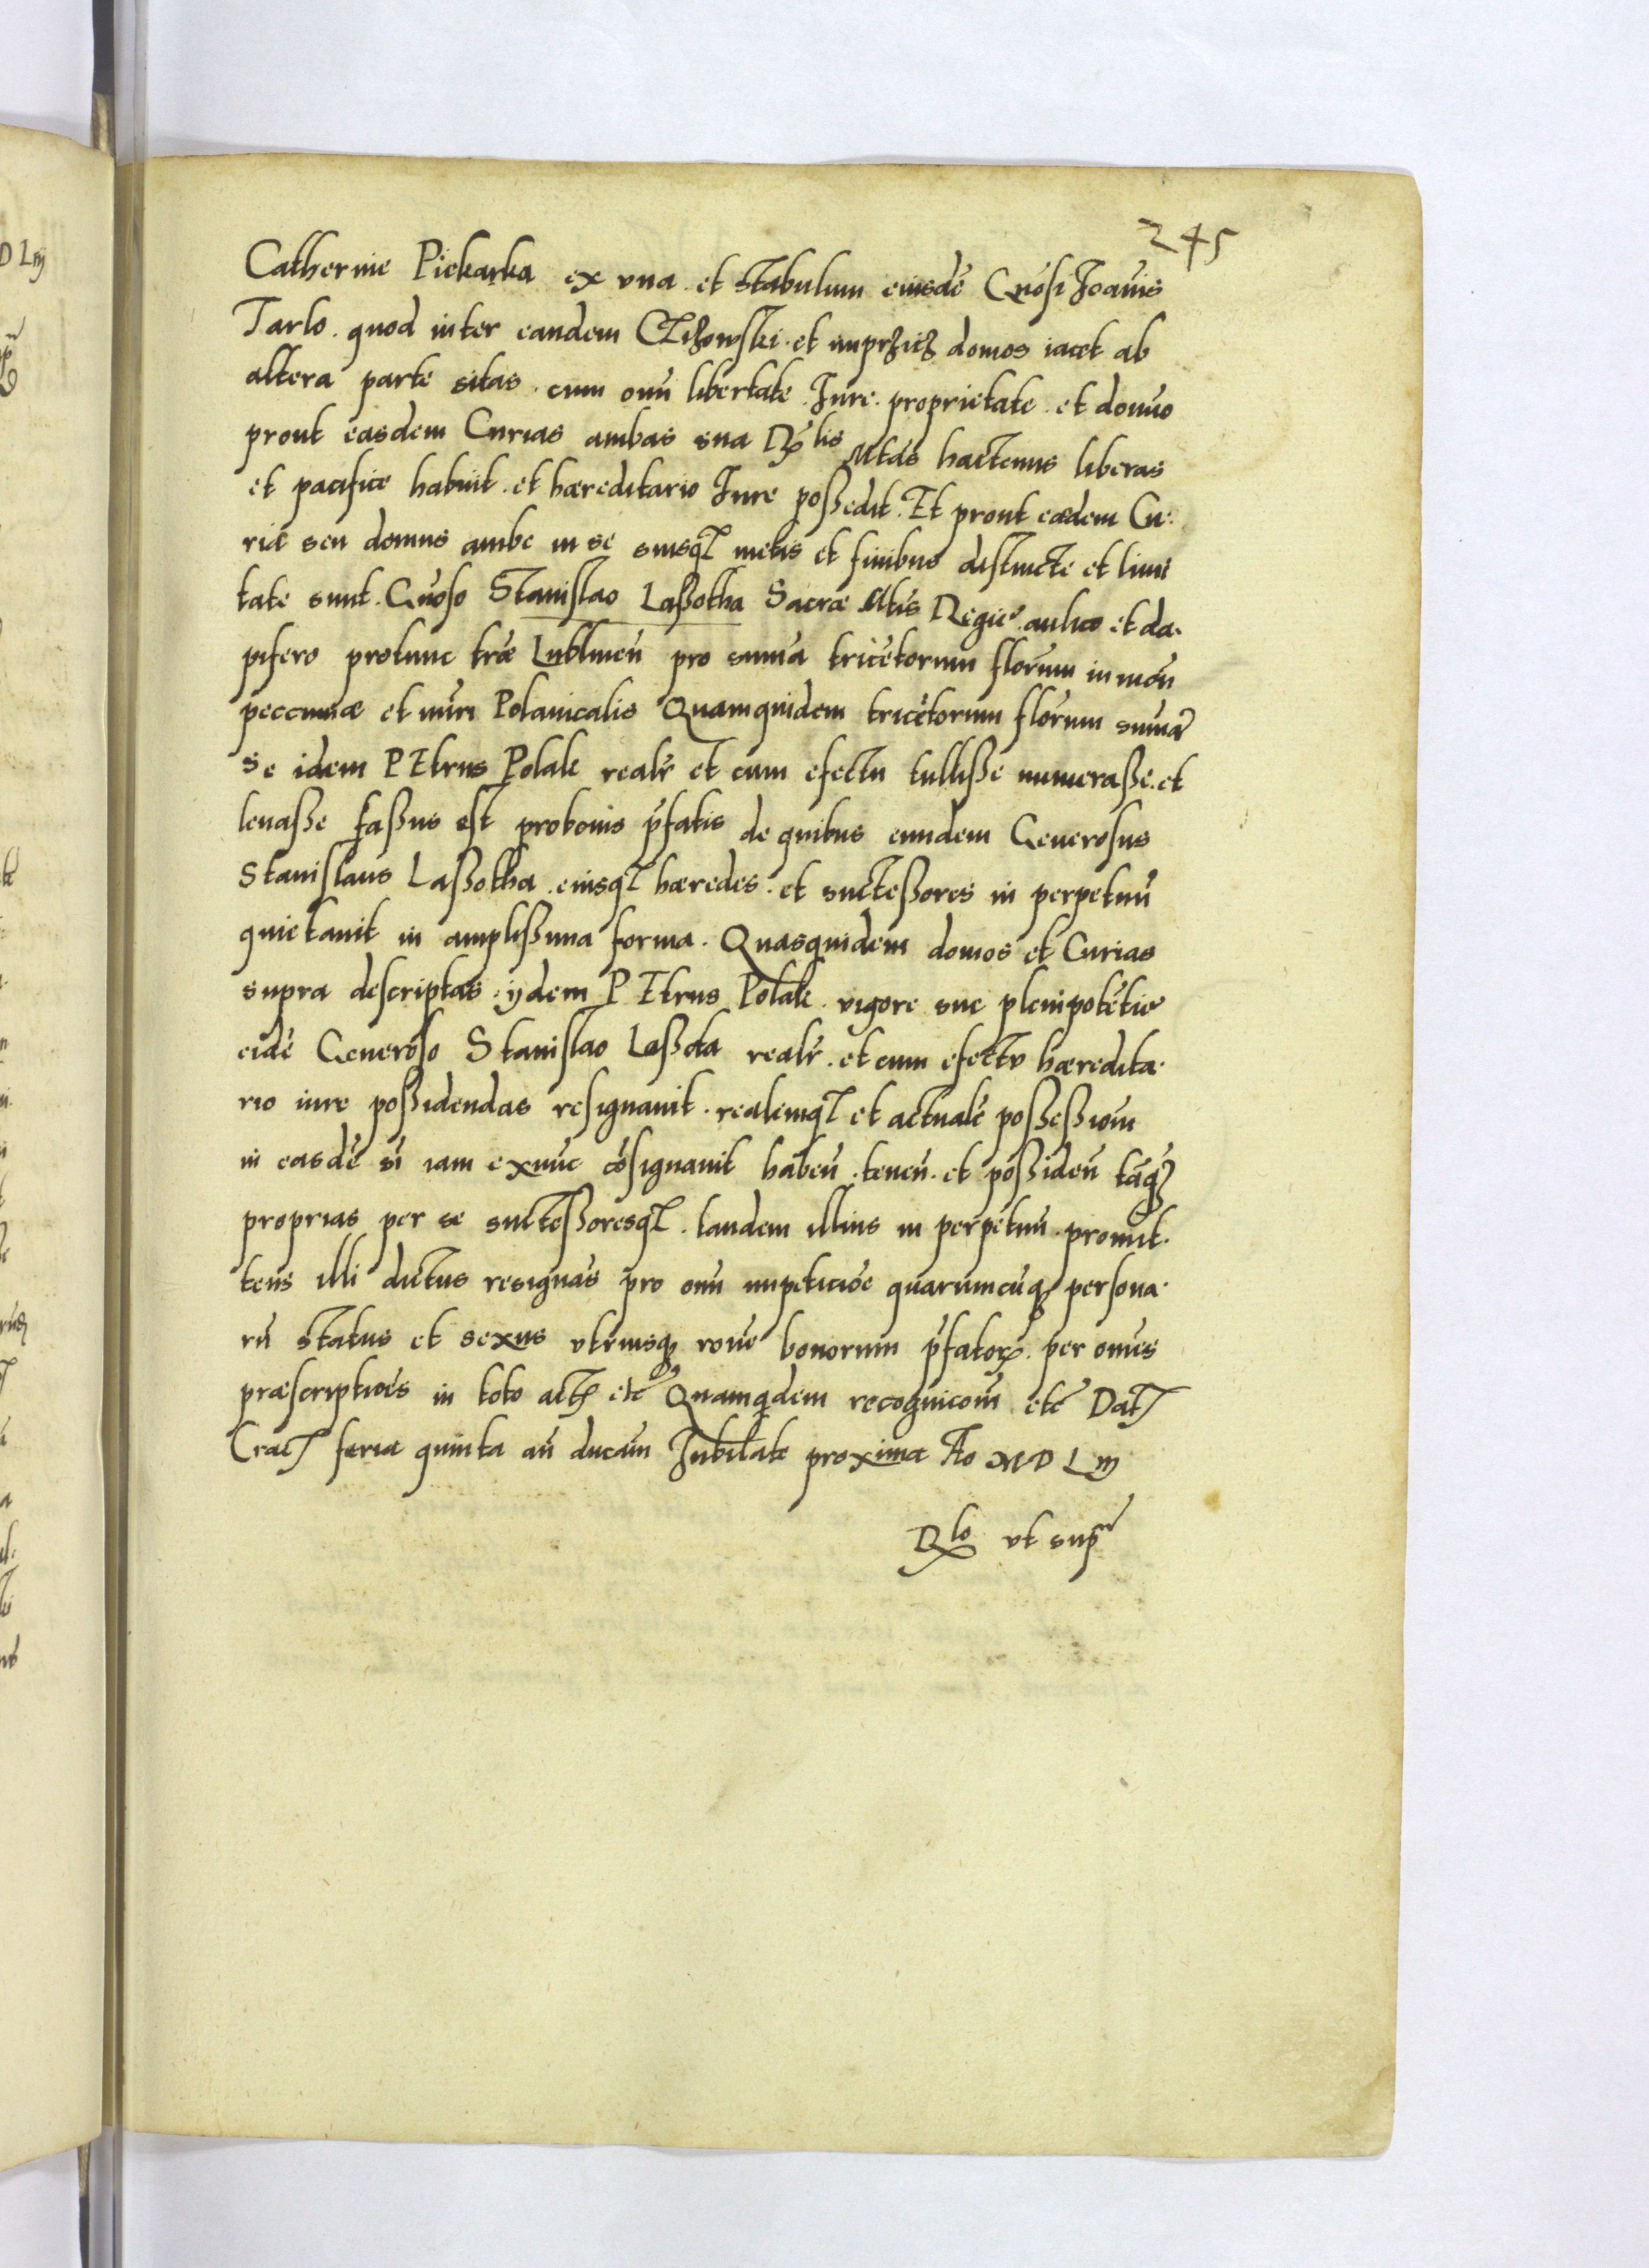 245
Catherine Piekarka ex vna et stabulum eiusdē Gnōsi Joānis
Tarlo. quod inter eandem Cłizowski. et domos iacet ab
altera parte sitas. cum omī libertate. Jure. proprietate. et domīo
prout easdem Curias ambas sua Rlis Mtās hactenus liberas
et pacifice habuit. et hæreditario Jure possedit. Et prout eædem Cu:
riæ seu domus ambe in se suisq metis et finibus distincte et limi
tate sunt. Gnōso Stanislao Lassotha Sacræ Mtis Regie aulico et da.
pifero protunc træ Lublineñ pro sum̄a tricētorum flōrum in moñ
peccuniæ et nūri Polonicalis Quamquidem tricētorum flōrum sum̄ā
se idem PEtrus Polak realr̄ et cum efectu tullisse numerasse. et
leuasse fassus est probonis pr̄fatis de quibus eundem Generosus
Stanislaus Lassotha. eiusq hæredes. et suctessores in perpetuū
quietauit in amplissima forma. Quasquidem domos et Curias
supra descriptas. ijdem PEtrus Polak. vigore sue plenipotētie
eidē Generoso Stanislao Lassota realr̄. et cum efectu hæredita.
rio iure possidendas resignauit. realemq et actualē possessiōm
in easdē sī iam exnūc cōsignauit habeñ. teneñ. et possideñ tāq
proprias per se suctessoresq. tandem illius in perpetuū. promit.
tens illi dictus resignās pro omī impeticiōe quarumcūq persona.
rū status et sexus vtriusq rōne bonorum pr̄fator. per omēs
præscriptiōes in toto act etc̄ Quamqdem recognicōm etc̄ Dat
Crac feria quinta añ ducām Jubilate proxima Ao MD Liij
Rlo vt supr